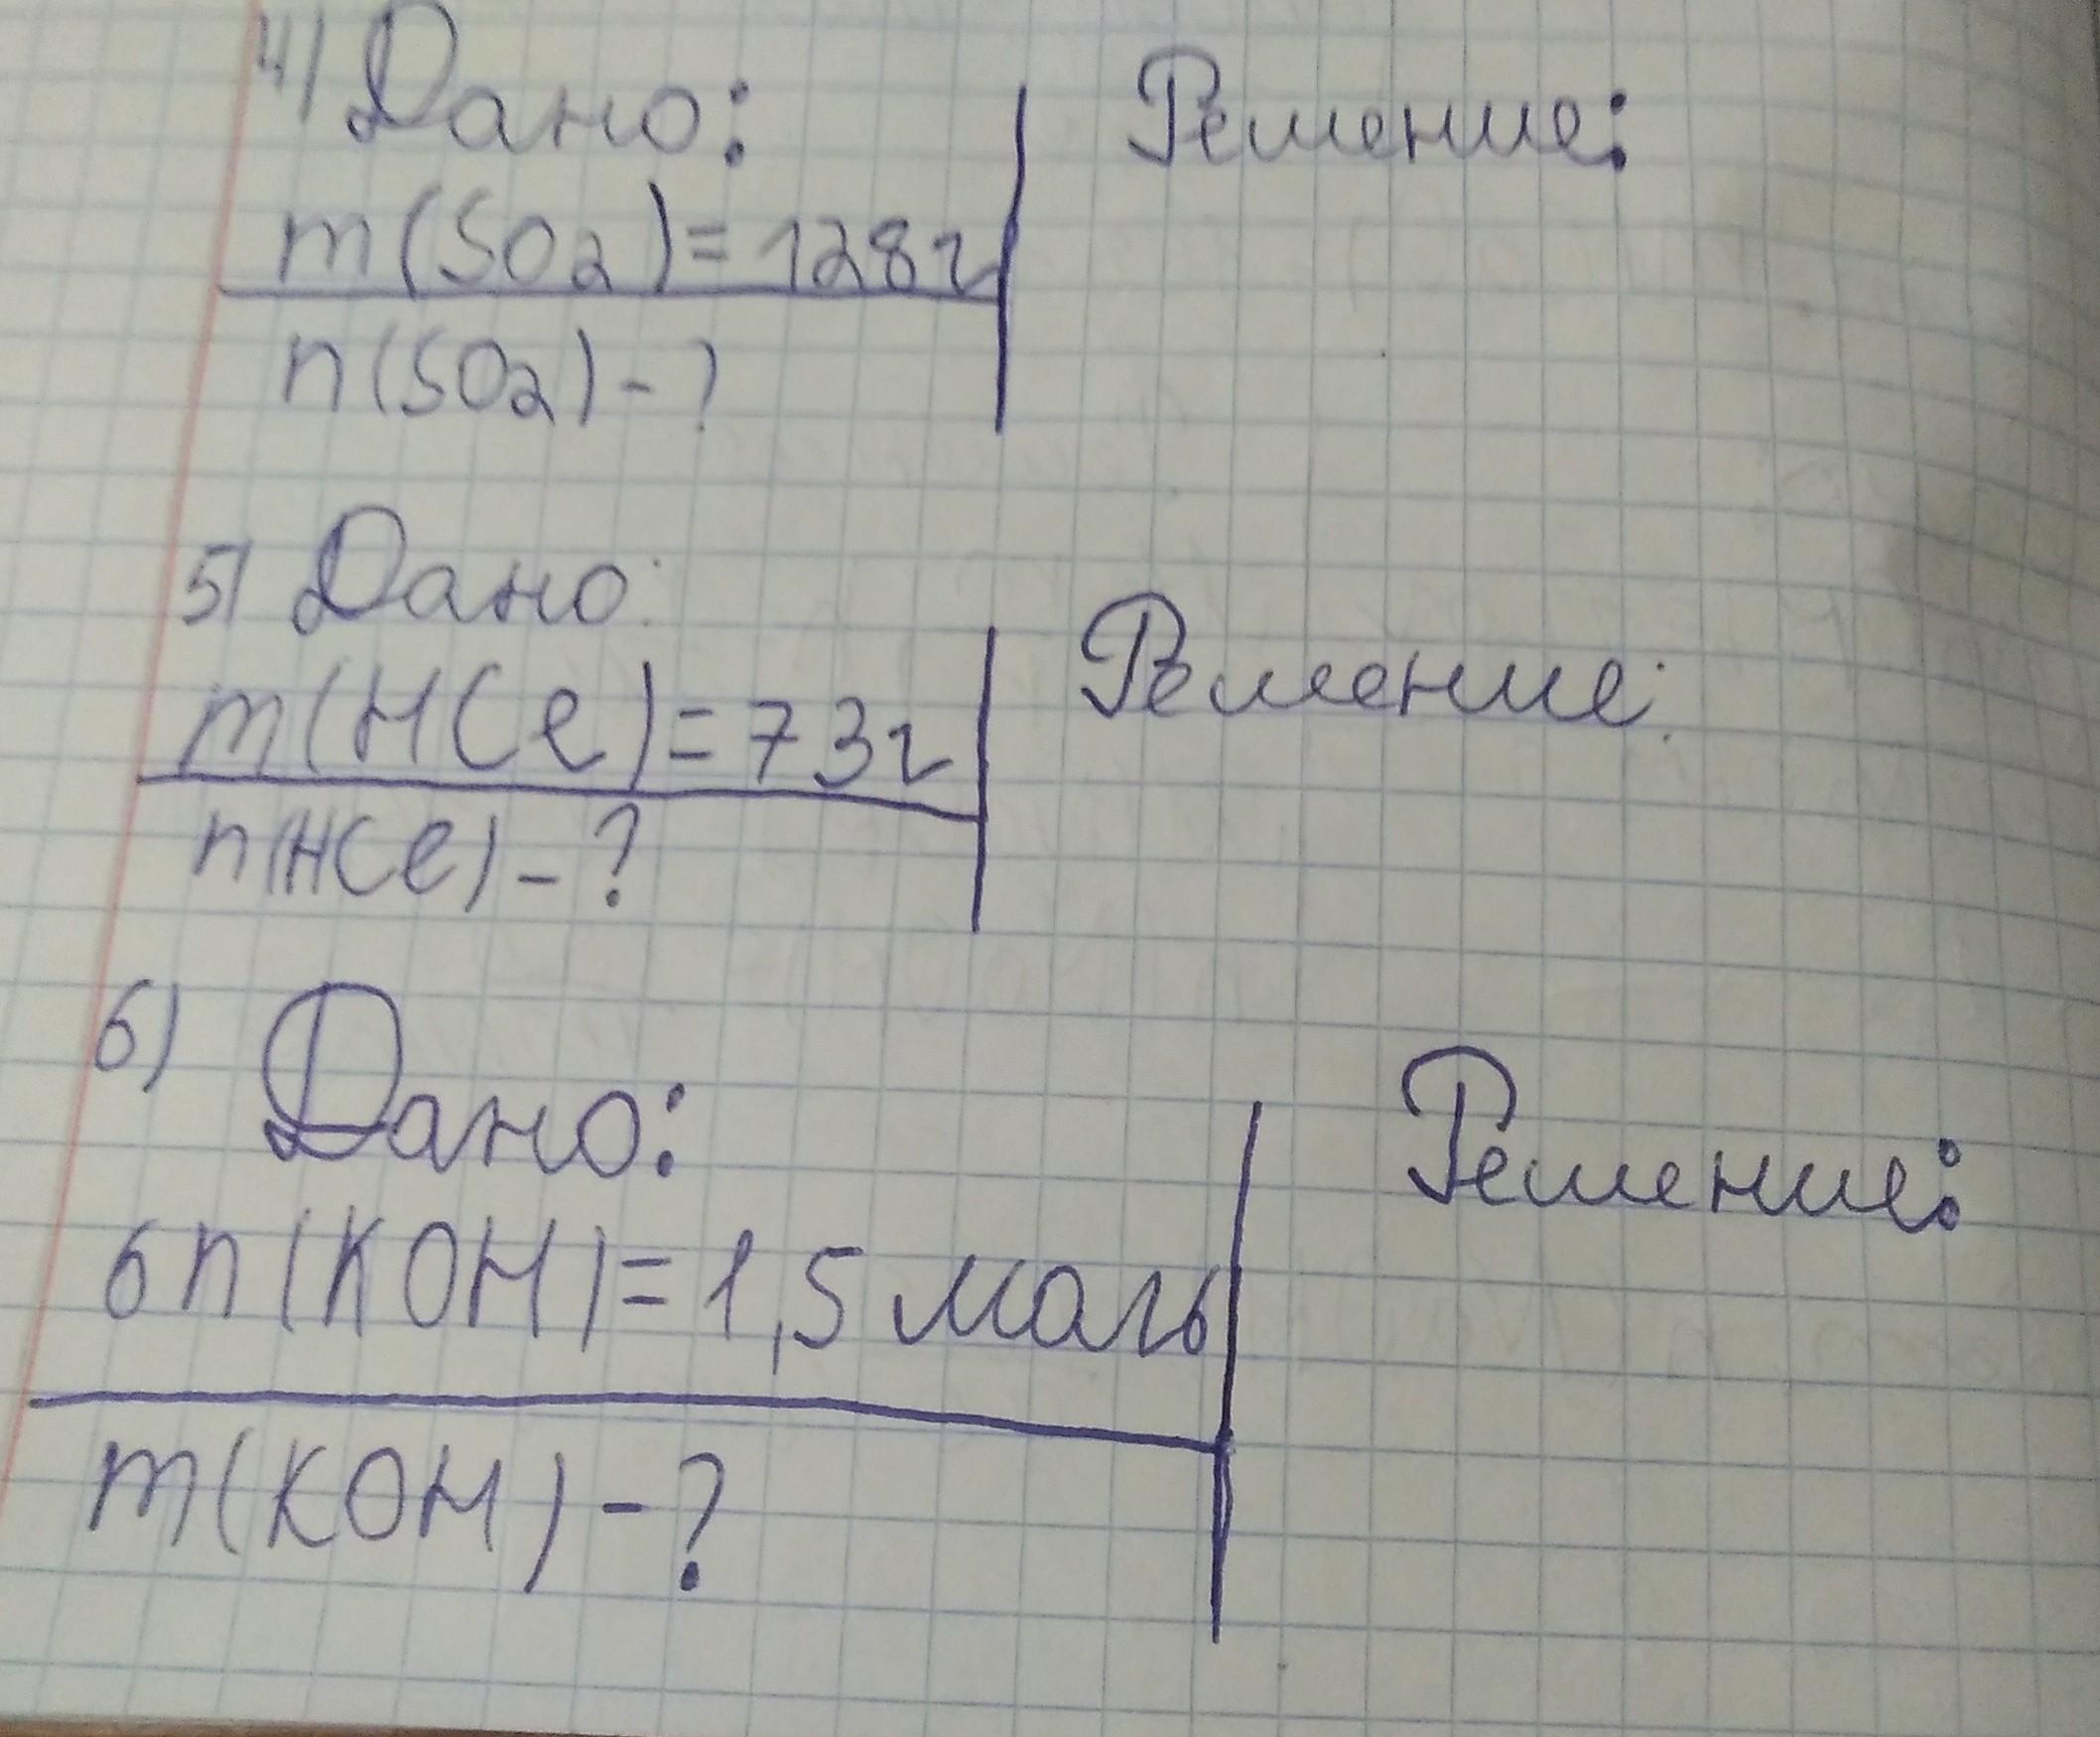 4) Дано:
Решение:
m(SO2)=128г
n(SO2)-?
5) Дано:
Решение:
m(HCl)=73г
n(HCl)-?
6)
Дано:
Решение:
6n(KOH)=1,5 моль
m(KOH)-?